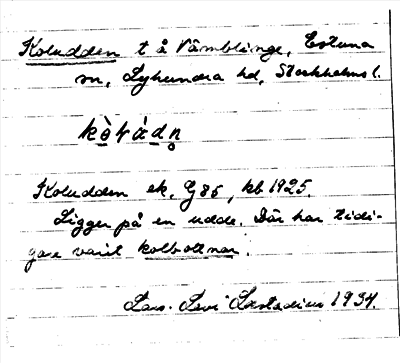 Koludden t å Vämblinge, Estuna
sn, Lyhundra hd, Stockholms l.
kò̱ƚàd̲n̥
Koludden ek. G 86, kb 1925.
Ligger på en udde. Där har tidi-
gare varit kolbottnar.
Lars-Levi Læstadius 1934.